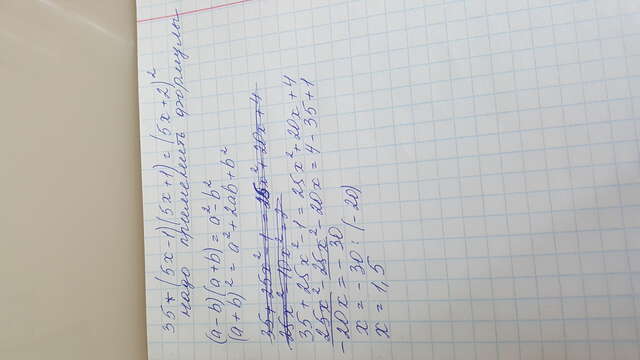 35+(5x-1)(5x+1)=(5x+2)²
надо применить формулы
(a-b)(a+b)=a²-b²
(a+b)²=a²+2ab+b²
35+25x²-1=25x²+20x+4
25x² 10x²=
35+25x²-1=25x²+20x+4
25x²-25x²-20x=4-35+1
-20x=-30
x=-30:(-20)
x=1,5